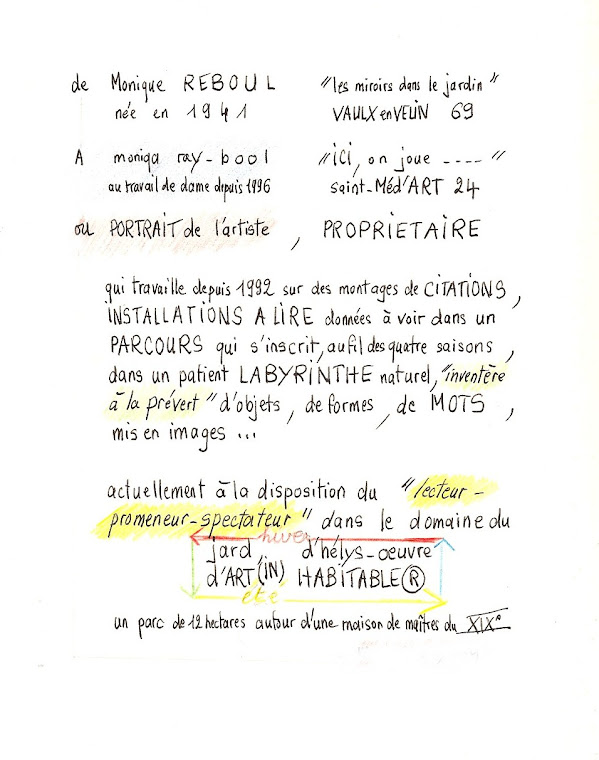 de Monique REBOUL "les miroirs dans le jardin"
née en 1941 VAULX en VELIN 69
A moniqa ray-bool "ici, on joue ----"
au travail de dame depuis 1996 saint-Méd'ART 24
ou PORTRAIT de l'artiste, PROPRIETAIRE
qui travaille depuis 1992 sur des montages de CITATIONS,
INSTALLATIONS A LIRE données à voir dans un
PARCOURS qui s'inscrit, au fil des quatre saisons,
dans un patient LABYRINTHE naturel, "inventère
à la prévert" d'objets, de formes, de MOTS,
mis en images ...
actuellement à la disposition du "lecteur-
promeneur-spectateur" dans le domaine du
hiver
jard, d'hélys-oeuvre
d'ART (IN) HABITABLE ®
été
un parc de 12 hectares autour d'une maison de maîtres du XIXe